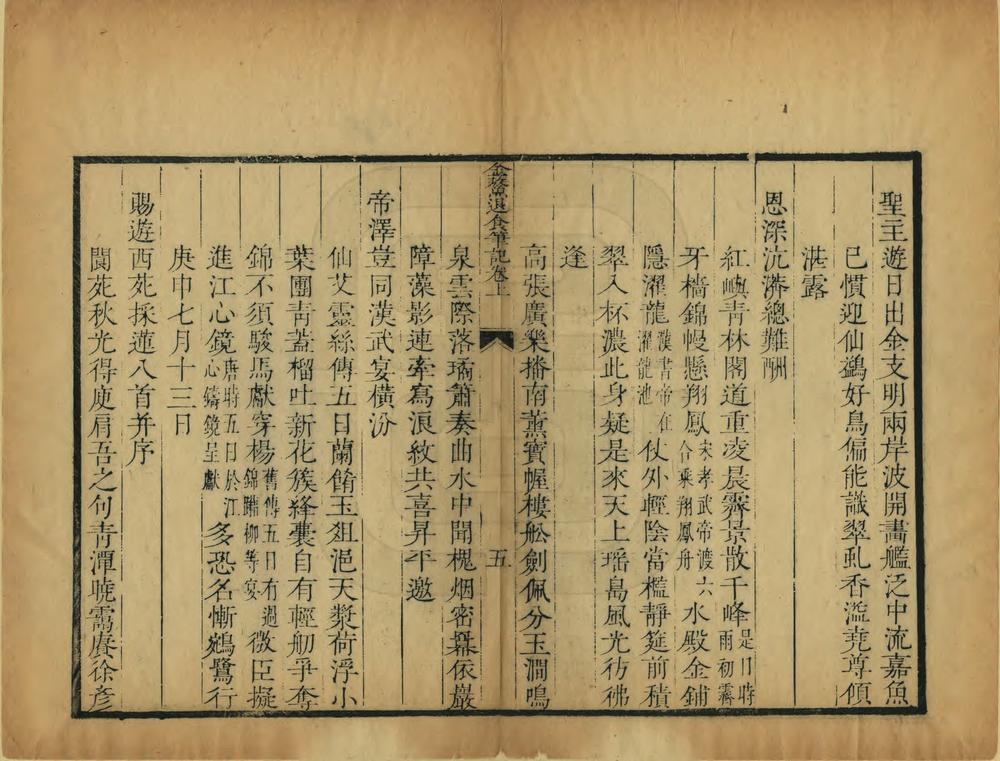 聖主遊日出金支明兩岸波開畫艦泛中流嘉魚
已慣迎仙鷁好鳥偏能識翠虬香滥堯尊傾
湛露
恩深沆瀣總難酬
紅嶼青林閣道重凌晨霽景散千峰是日時雨初霽
牙檣錦幔懸翔鳳宋孝武帝渡六合乘翔鳳舟水殿金鋪
隱濯龍漢書帝在濯龍池仗外輕陰當檻靜筵前積
翠入杯濃此身疑是來天上瑶島風光彷彿
逢
高張廣樂播南薫寳幄樓舩劍佩分玉澗鳴
金鰲退食筆記卷上
五
泉雲際落瑀簫奏曲水中聞槐烟密幕依巖
障藻影連牽寫浪紋共喜昇平邀
帝澤豈同漢武宴橫汾
仙艾靈絲傳五日蘭餚玉爼浥天漿荷浮小
葉團靑蓋榴吐新花簇絳囊自有輕舠爭奪
錦不須駿馬獻穿楊舊傳五日有過錦躤柳等宴微臣擬
進江心鏡唐時五日於江心鑄鏡呈獻多恐名慚鵷鷺行
庚申七月十三日
賜遊西苑採蓮八首并序
閬苑秋光得庾肩吾之句青潭曉靄賡徐彦